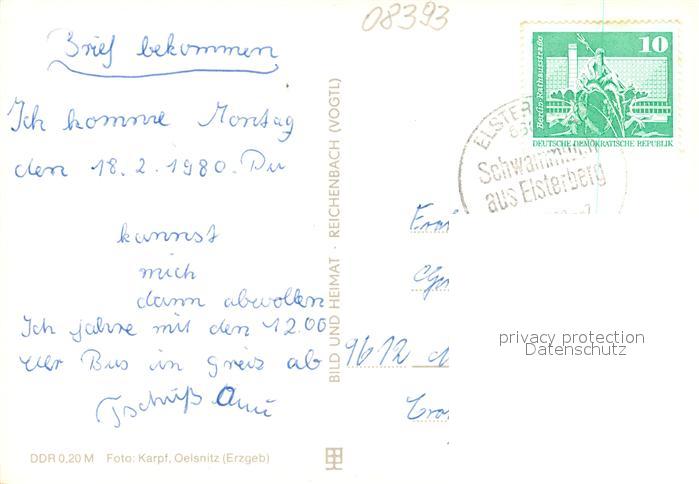 08393
Brief bekommen
Ich komme Montag
den 18.2.1980. Du
kannst
mich
dann abwollen
Ich jahre mit den 12.00
Uer Bus in Greiz ab
Tschüß
DDR 0,20 M Foto: Karpf, Oelsnitz (Erzgeb)
BILD UND HEIMAT · REICHENBACH (VOGTL)
10
Berlin-Rathausstraße
DEUTSCHE DEMOKRATISCHE REPUBLIK
ELSTER
aus Elsterberg
9612
privacy protection
Datenschutz